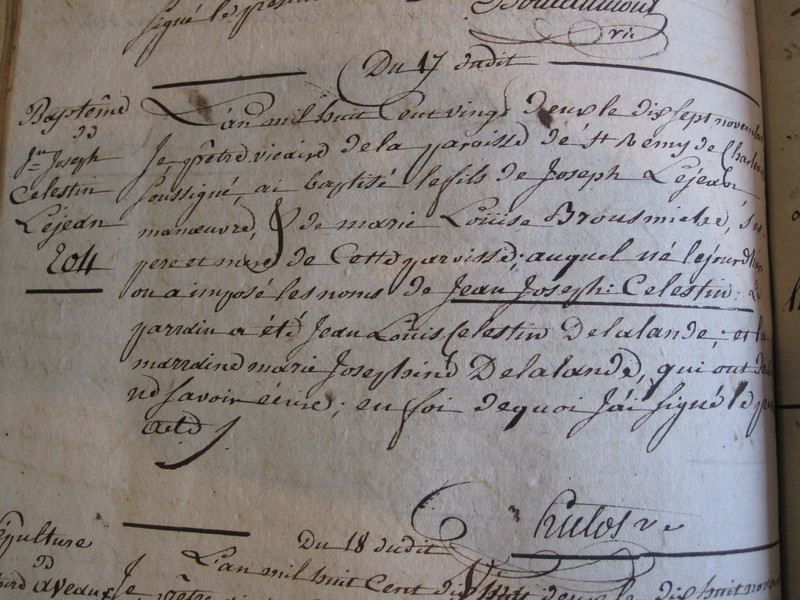 signé le présent
vic
Du 17 dudit
Baptême
de
Jn Joseph
Celestin
Lejean
204
L'an mil huit Cent vingt deux le dix sept novembre
Je prêtre vicaire de la paroisse de St Remy de
soussigné, ai baptisé le fils de Joseph Lejean
manœuvre, & de marie Louise Brousmiche, ses
pere et mere de Cette paroisse; auquel né le jour
on a imposé les noms de Jean Joseph Celestin: Le
parrain a été Jean Louis Celestin Delalande, et la
marraine marie Josephine Delalande, qui ont
ne savoir écrire; en foi de quoi J'ai signé le
acte
Du 18 dudit
sépulture
de
L'an mil huit Cent vingt deux le dix huit
Je prêtre